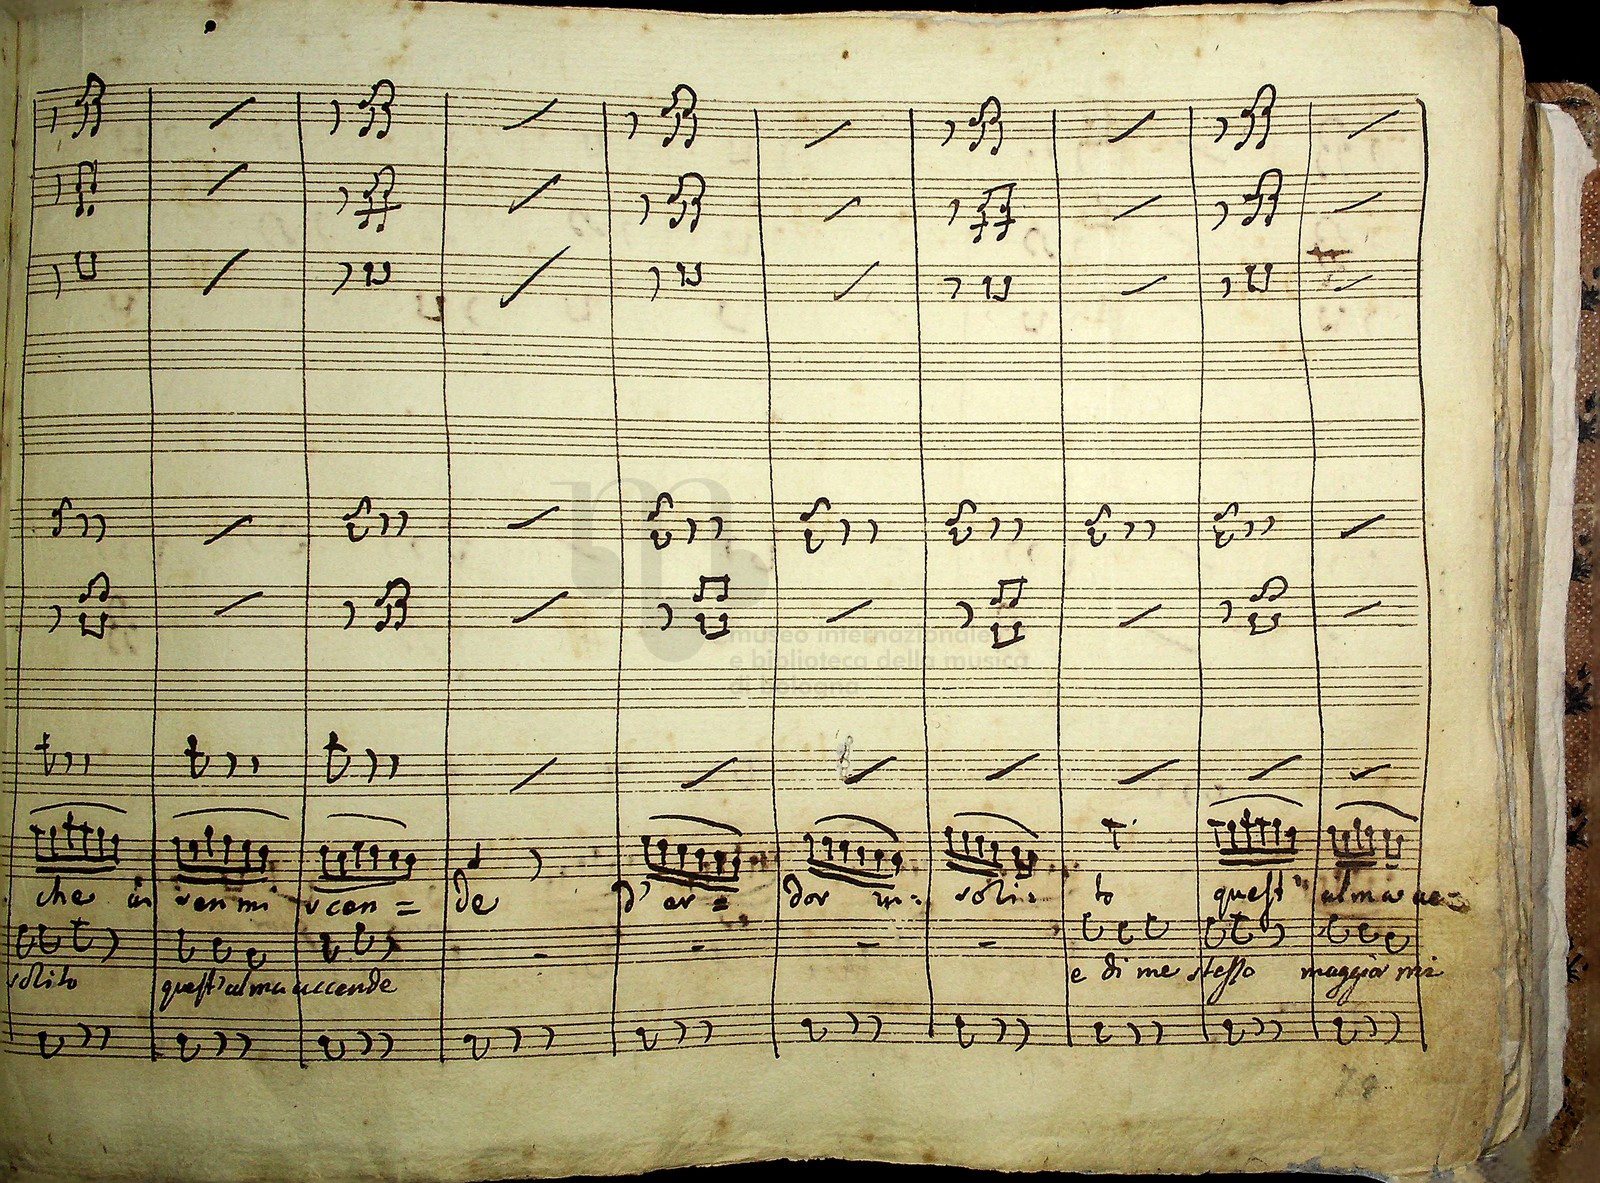 che in sen mi scen = de d' ar = dor in= soli= to quest' alma ac=
solito quest' alma accende e di me stesso maggior mi
museo internazionale
e biblioteca della musica
di bologna